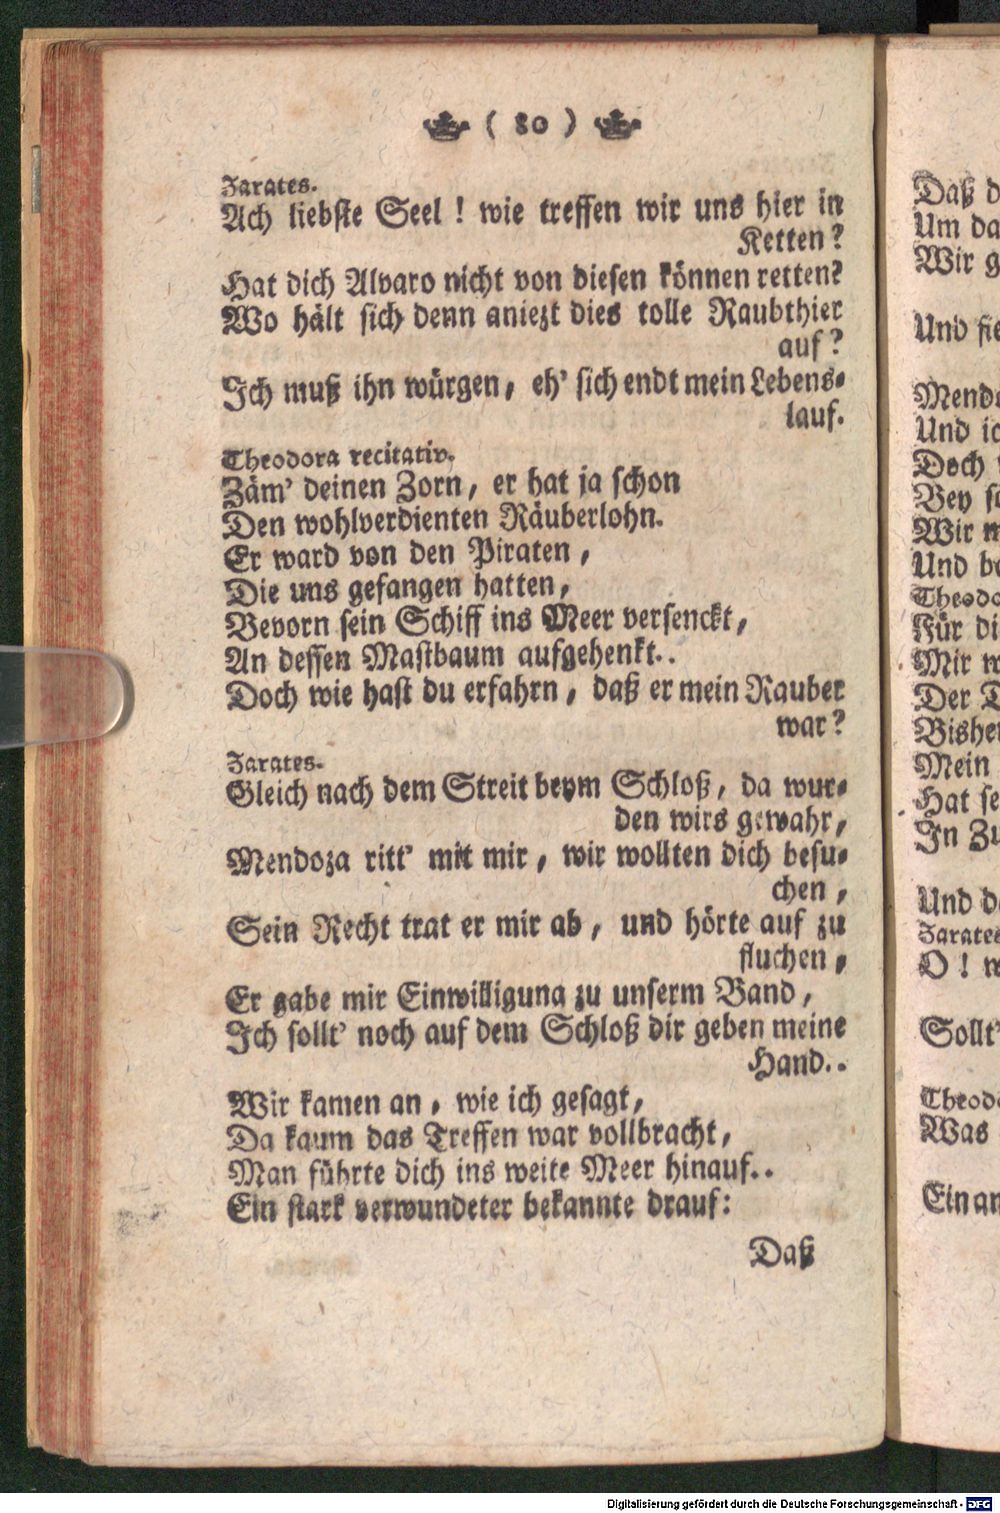 ( 80 )
Zarates.
Ach liebste Seel ! wie treffen wir uns hier in
Ketten?
Hat dich Alvaro nicht von diesen können retten?
Wo hält sich denn aniezt dies tolle Raubthier
auf?
Ich muß ihn würgen, eh' sich endt mein Lebens-
lauf.
Theodora recitativ.
Zäm' deinen Zorn, er hat ja schon
Den wohlverdienten Räuberlohn.
Er ward von den Piraten,
Die uns gefangen hatten,
Bevorn sein Schiff ins Meer versenckt,
An dessen Mastbaum aufgehenkt..
Doch wie hast du erfahrn, daß er mein Rauber
war?
Zarates.
Gleich nach dem Streit beym Schloß, da wur-
den wirs gewahr,
Mendoza ritt' mit mir, wir wollten dich besu-
chen,
Sein Recht trat er mir ab, und hörte auf zu
fluchen,
Er gabe mir Einwilligung zu unserm Band,
Ich sollt' noch auf dem Schloß dir geben meine
Hand..
Wir kamen an, wie ich gesagt,
Da kaum das Treffen war vollbracht,
Man führte dich ins weite Meer hinauf..
Ein stark verwundeter bekannte drauf:
Daß
Daß
Um
Wir
Und
Und
Doch
Bey
Wir
Und
Für
Mir
Der
Mein
Hat
In
Und
Zarates
O !
Sollt'
Was
Ein
Digitalisierung gefördert durch die Deutsche Forschungsgemeinschaft - DFG